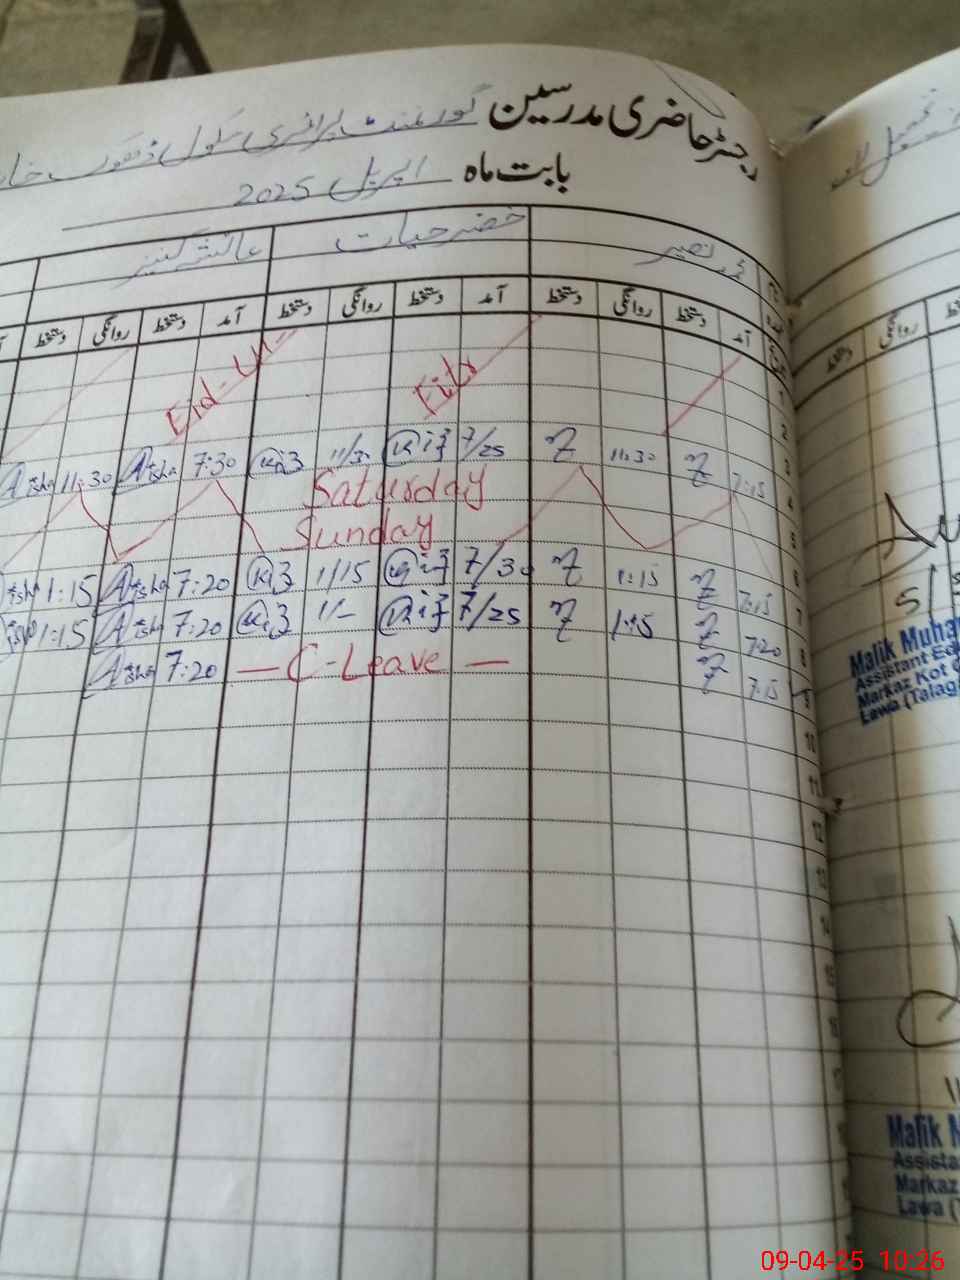 رجسٹر حاضری مدرسین گورنمنٹ پرائمری سکول ڈھوک
بابت ماہ اپریل 2025
محمد نصیر خضر حیات عائشہ کنیز
آمد دستخط روانگی دستخط آمد دستخط روانگی دستخط آمد دستخط روانگی دستخط
1
Eid-Ul- Fitr
2
3 7:15 11:30 7/25 11/30 7:30 Aisha 11:30 Aisha
4
Saturday
5
Sunday
6
7 7:15 1:15 7/30 1/15 7:20 Aisha 1:15
8 7:20 1:15 7/25 1/- 7:20 Aisha 1:15
9 7:15 — C-Leave — 7:20 Aisha
10
11
12
13
14
15
16
17
دستخط روانگی
Malik Muha
Assistant Ed
Markaz Kot
Lawa (Talag
Malik M
Assista
Markaz
Lawa (
09-04-25 10:26